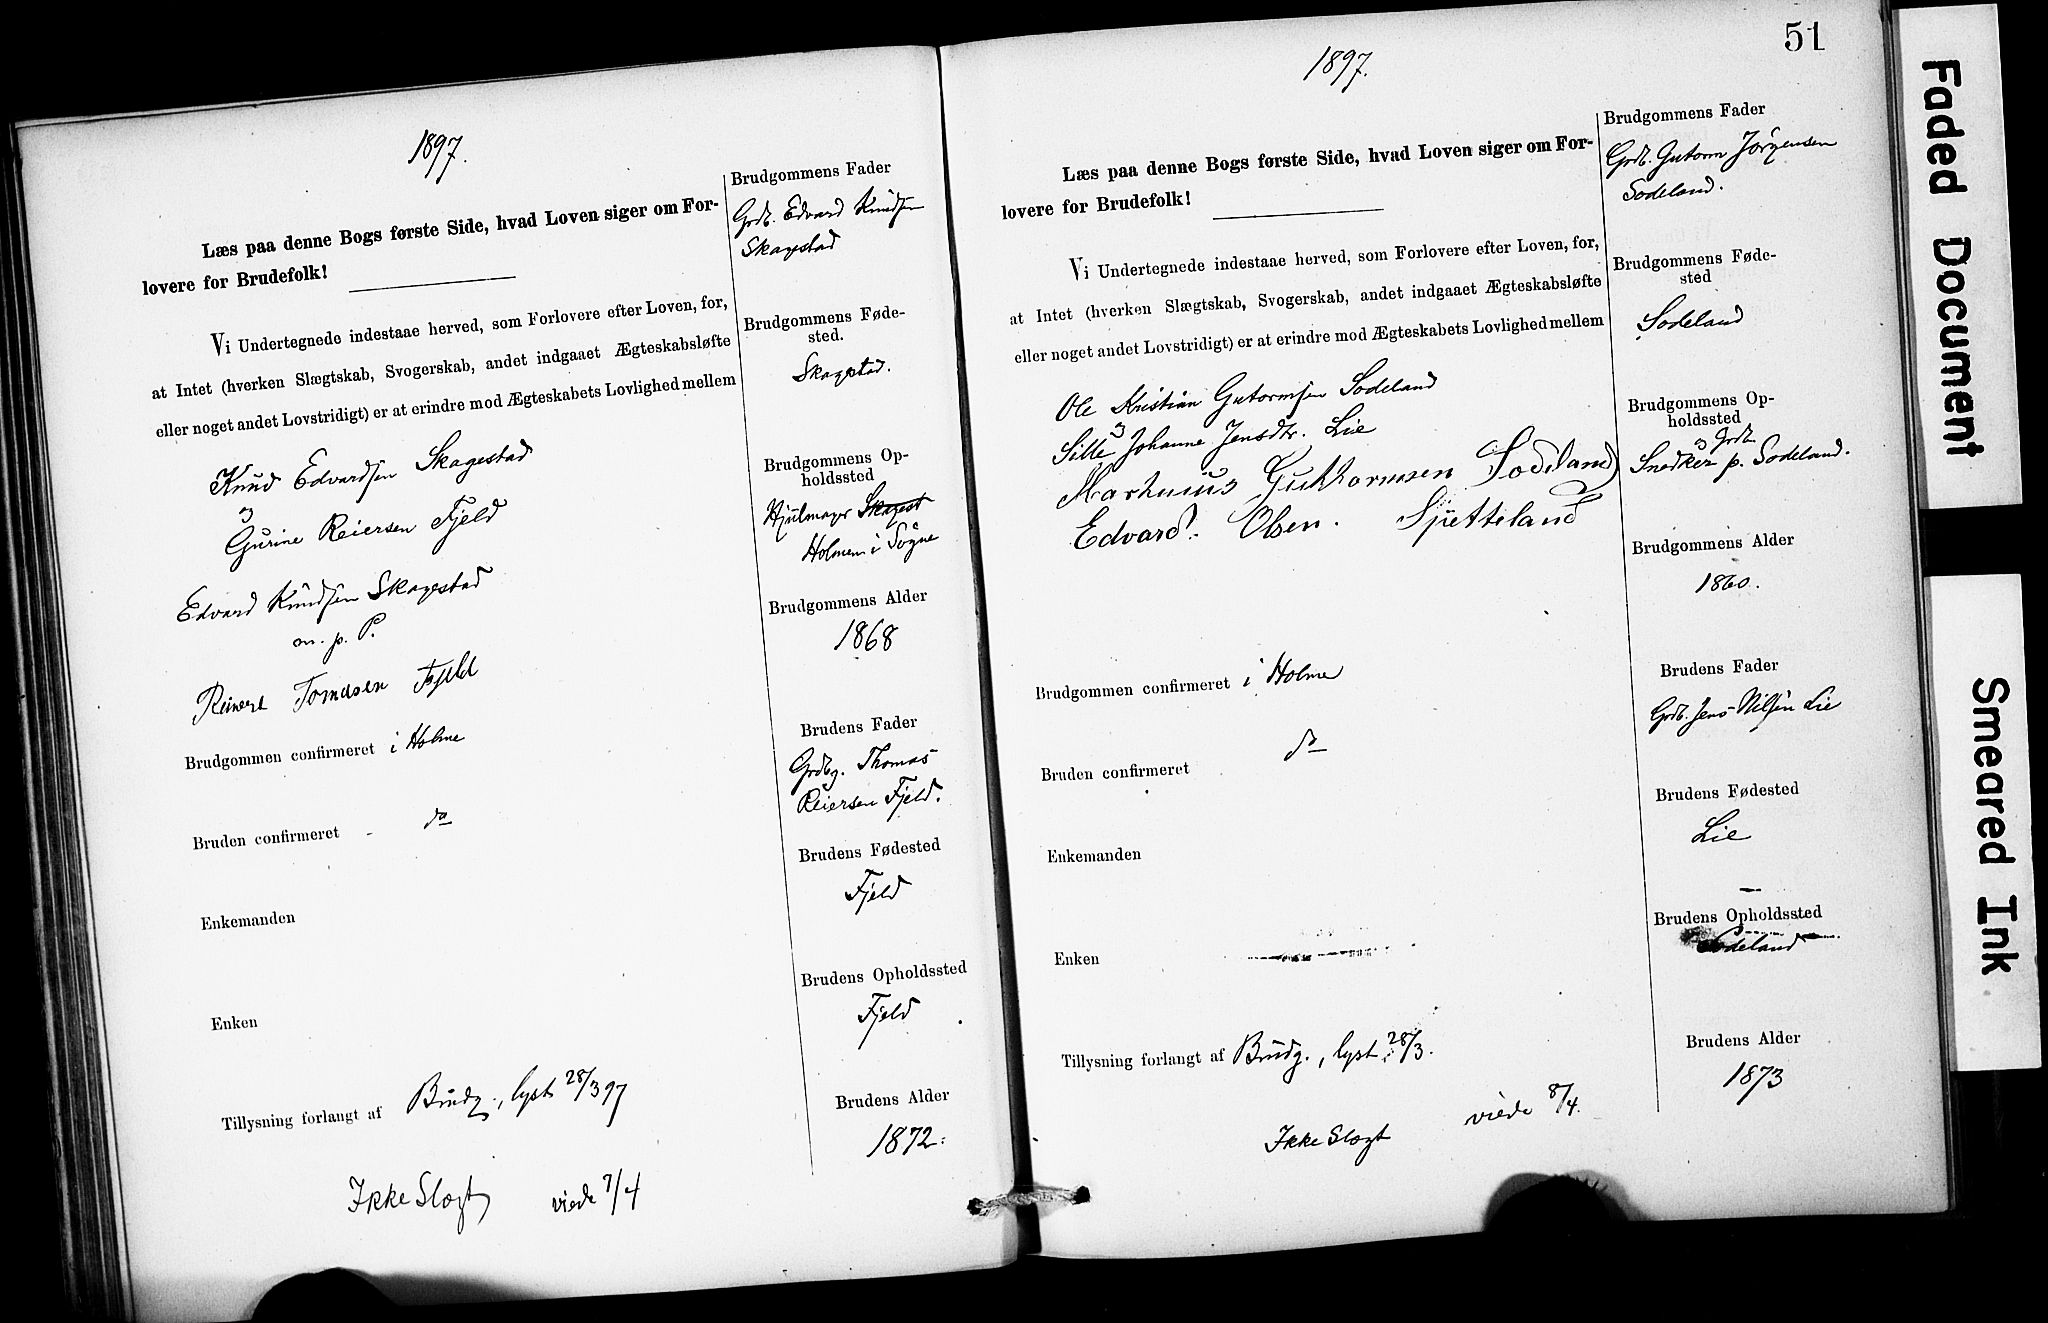 1897.
Læs paa denne Bogs første Side, hvad Loven siger om For-
lovere for Brudefolk!
Vi Undertegnede indestaae herved, som Forlovere efter Loven, for,
at Intet (hverken Slægtskab, Svogerskab, andet indgaaet Ægteskabsløfte
eller noget andet Lovstridigt) er at erindre mod Ægteskabets Lovlighed mellem
Knud Edvardsen Skagestad
og
Gurine Reiersen Fjeld
Edvard Knudsen Skagestad
m. p. P.
Reinert Tomasen Fjeld
Brudgommen confirmeret i Holme
Bruden confirmeret - do
Enkemanden
Enken
Tillysning forlangt af Brudg., lyst 28/3 97
Ikke Slægt viede 7/4
Brudgommens Fader
Grdb. Edvard Knudsen
Skagestad
Brudgommens Føde-
sted.
Skagestad.
Brudgommens Op-
holdssted
Hjulmager Skagest
Holmen i Søgne
Brudgommens Alder
1868
Brudens Fader
Grdbg. Thomas
Reiersen Fjeld.
Brudens Fødested
Fjeld
Brudens Opholdssted
Fjeld
Brudens Alder
1872.
51
1897.
Læs paa denne Bogs første Side, hvad Loven siger om For-
lovere for Brudefolk!
Vi Undertegnede indestaae herved, som Forlovere efter Loven, for,
at Intet (hverken Slægtskab, Svogerskab, andet indgaaet Ægteskabsløfte
eller noget andet Lovstridigt) er at erindre mod Ægteskabets Lovlighed mellem
Ole Kristian Gutormsen Sodeland
og
Sille Johanne Jensdtr. Lie
Marthinius Gutthormsen Sodeland
Edvard. Olsen. Spetteland
Brudgommen confirmeret i Holme
Bruden confirmeret do
Enkemanden
Enken
Tillysning forlangt af Brudg., lyst 28/3.
Ikke Slægt viede 8/4.
Brudgommens Fader
Grdb. Gutorm Jörgensen
Sodeland.
Brudgommens Føde-
sted
Sodeland
Brudgommens Op-
holdssted
og Grdb.
Snedker p. Sodeland.
Brudgommens Alder
1860.
Brudens Fader
Grdb. Jens Nilsen Lie
Brudens Fødested
Lie
Brudens Opholdssted
Sodeland
Brudens Alder
1873
Faded Document
Smeared Ink